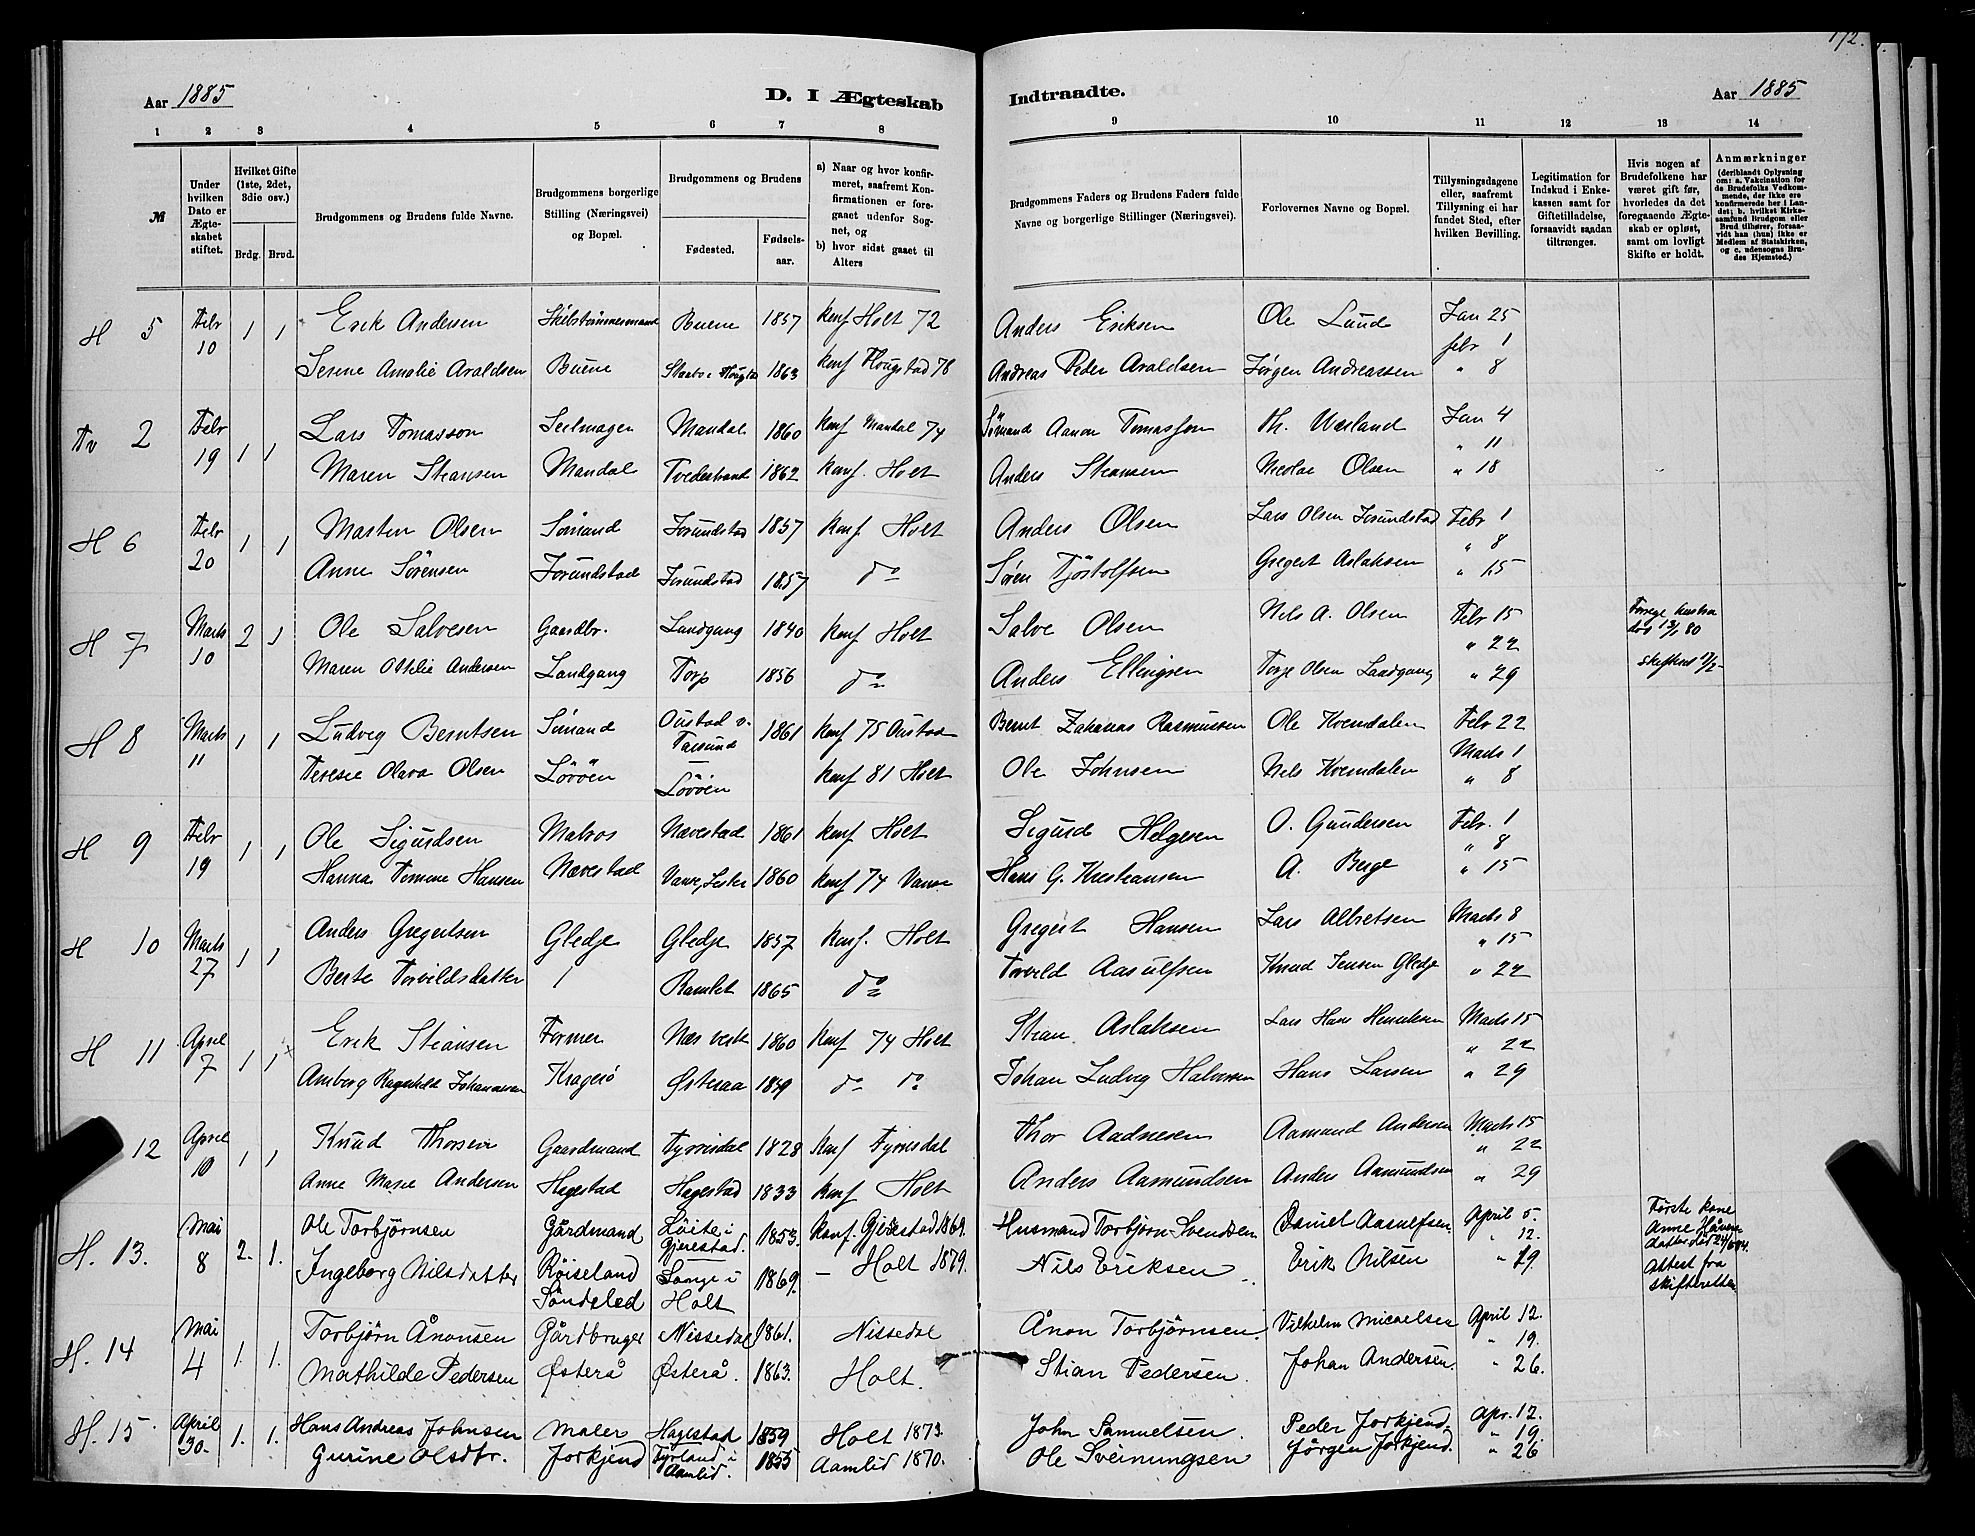 172.
Aar 1885 D. I Ægteskab Indtraadte. Aar 1885
1 2 3 4 5 6 7 8 9 10 11 12 13 14
№
Under hvilken Dato er Ægteskabet stiftet.
Hvilket Gifte (1ste, 2det, 3die osv.)
Brdg. Brud.
Brudgommens og Brudens fulde Navne.
Brudgommens borgerlige Stilling (Næringsvei) og Bopæl.
Brudgommens og Brudens
Fødested. Fødselsaar.
a) Naar og hvor konfirmeret, saafremt Konfirmationen er foregaaet udenfor Sognet, og
b) hvor sidst gaaet til Alters
Brudgommens Faders og Brudens Faders fulde Navne og borgerlige Stillinger (Næringsvei).
Forlovernes Navne og Bopæl.
Tillysningsdagene eller, saafremt Tillysning ei har fundet Sted, efter hvilken Bevilling.
Legitimation for Indskud i Enkekassen samt for Giftetilladelse, forsaavidt saadan tiltrænges.
Hvis nogen af Brudefolkene har været gift før, hvorledes da det foregaaende Ægteskab er opløst, samt om lovligt Skifte er holdt.
Anmærkninger (deriblandt Oplysning om: a. Vakcination for de Brudefolks Vedkommende, der ikke ere konfirmerede her i Landet; b. hvilket Kirkesamfund Brudgom eller Brud tilhører, forsaavidt han (hun) ikke er Medlem af Statskirken, og c. udensogns Brudes Hjemsted.)
H 5 Febr 10 1 1 Erik Andersen Skibstømmermand Buene 1857 konf Holt 72 Anders Eriksen Ole Lund Jan 25
febr 1
Serene Amalie Araldsen Buene 1863 konf Flougstad 78 Andreas Peder Araldsen Jørgen Andreassen " 8
Tv 2 Febr 19 1 1 Lars Tomasson Seilmager Mandal 1860 konf Mandal 74 Sømand Aanon Tomassen Th. Jan 4
" 11
Maren Stiansen Mandal Tvedestrand 1862 konf. Holt Anders Stiansen Nicolai Olsen " 18
H 6 Febr 20 1 1 Morten Olsen Sømand Jorundstad 1857 konf Holt Anders Olsen Lars Olsen Jorundstad Febr 1
" 8
Anne Sørensen Jorundstad Jorundstad 1857 do Søren Tjöstolfsen Gregert Aslaksen " 15
H 7 Marts 10 2 1 Ole Salvesen Gaardbr. Landgang 1840 konf Holt Salve Olsen Nils A. Olsen Febr 15 Forrige hustru
" 22 død 13/1 80
Maren Othilie Andersen Landgang Torp 1856 do Anders Ellingsen Torje Olsen Landgang " 29
H 8 Marts 11 1 1 Ludvig Berntsen Sömand Oustad v. Farsund 1861 konf 75 Oustad Bernt Zakarias Rasmussen Ole Kvendalen Febr 22
Marts 1
Terese Olava Olsen Lövöen Lövöen konf 81 Holt Ole Johnsen Nils Kvendalen " 8
H 9 Febr 19 1 1 Ole Sigurdsen Matros Nævestad 1861 konf Holt Sigurd Helgesen O. Gundersen Febr. 1
" 8
Hanna Tomine Hansen Nævestad Vanse, Lister 1860 konf 74 Vanse Hans G. Kristiansen A. Berge " 15
H 10 Marts 27 1 1 Anders Gregertsen Gledje Gledje 1857 konf. Holt Gregert Hansen Lars Albretsen Marts 8
" 15
Berte Torvildsdatter Ramlet 1865 do Torvild Aasulfsen Knud Jensen Gledje " 22
H 11 April 7 1 1 Erik Stiansen Former Næs verk 1860 konf 74 Holt Stian Aslaksen Lars Hans Henriksen Marts 15
" 22
Amborg Ragnhild Johannesen Kragerö Østeraa 1859 do do Johan Ludvig Halvorsen Hans Larsen " 29
12 April 10 1 1 Knud Thorsen Gaardmand Fyrresdal 1828 konf Fyrresdal Thor Aadnesen Aamund Andersen Marts 15
" 22
Anne Marie Andersen Hagestad Hagestad 1833 konf Holt Anders Aamundsen Anders Aamundsen " 29
H. 13. Mai 8 2. 1. Ole Torbjörnsen Gårdmand Löite i Gjerestad. 1853. konf. Gjerestad 1869. Husmand Torbjörn Svendsen Daniel Aasulfsen April 5. Første kone
" 12. Anne Håvers
datter död 24/6 84.
Ingeborg Nilsdatter Røiseland Söndeled Songe i Holt 1869. – Holt 1879. Nils Eriksen Erik Nilsen " 19. attest fra
skifteretten
H. 14 Mai 4 1. 1. Torbjørn Ånonsen Gårdbruger Nissedal 1861. Nissedal Ånon Torbjørnsen. Vilhelm Micaelsen April 12.
" 19.
Mathilde Pedersen Østerå Østerå. 1863. Holt. Stian Pedersen. Johan Andersen. " 26.
H. 15 April 30. 1. 1. Hans Andreas Johnsen Maler Hagestad 1859 Holt 1873. John Samuelsen. Peder Jorkjend. Apr. 12.
" 19.
Gurine Olsdtr. Jorkjend Fyrland i Aamlid. 1855 Aamlid 1870. Ole Sveinungsen Jörgen Jorkjend. " 26